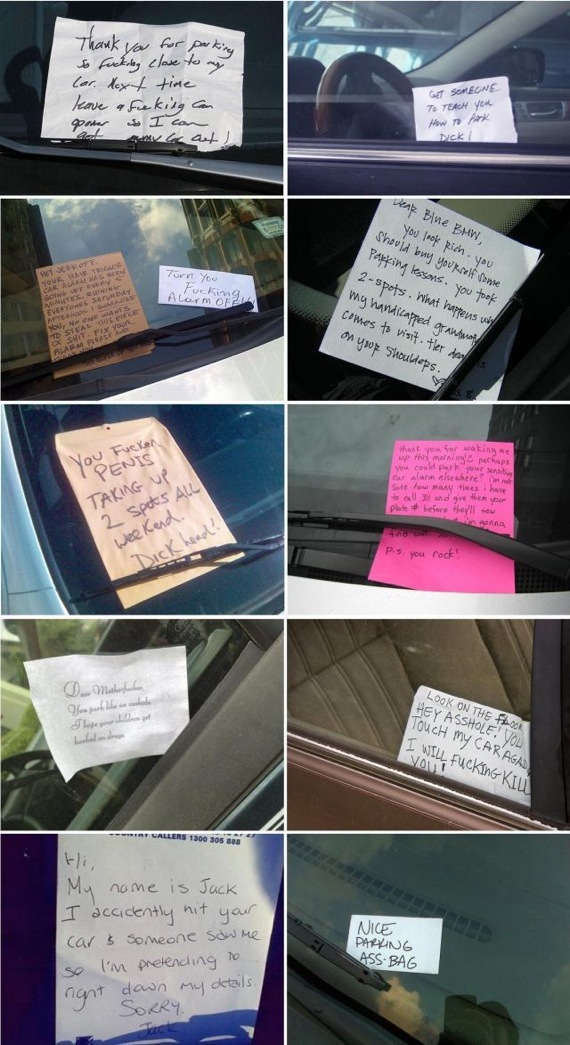 Thank you for parking
so fucking close to my
car. Next time
leave a fucking can
opener so I can
get my car out!
GET SOMEONE
TO TEACH YOU
HOW TO PARK
DICK!
HEY JERKOFF.
YOUR HAIR TRIGGER
CAR ALARM HAS BEEN
GOING OFF EVERY
MINUTES, RUINING
EVERYONES SATURDAY
AFTERNOON. I GUARANTEE
YOU, NO ONE WANTS
TO STEAL THIS PIECE
OF SHIT. FIX YOUR
ALARM PLEASE AND
Turn You
Fucking
Alarm OFF!
Dear Blue BMW,
you look rich. you
should buy yourself some
parking lessons. You took
2-spots. What happens wh
my handicapped grandma
comes to visit. Her dea
on your shoulders.
You Fucken
PENIS
TAKING UP
2 SPOTS ALL
weekend.
Dick head!
thank you for waking me
up this morning! perhaps
you could park your sensitive
car alarm elsewhere? i'm not
sure how many times i have
to call 311 and give them your
plate # before they'll tow
but i'm gonna
find out
P.S. you rock!
Dear Motherfucker,
You park like an asshole.
I hope your children get
hooked on drugs.
LOOK ON THE FLOOR
HEY ASSHOLE! YOU
TOUCH MY CAR AGAI
I WILL FUCKING KILL
YOU!
COUNTRY CALLERS 1300 305 888
Hi,
My name is Jack
I accidently hit your
car & someone saw me
so I'm pretending to
right down my details.
SORRY.
Jack
NICE
PARKING
ASS-BAG